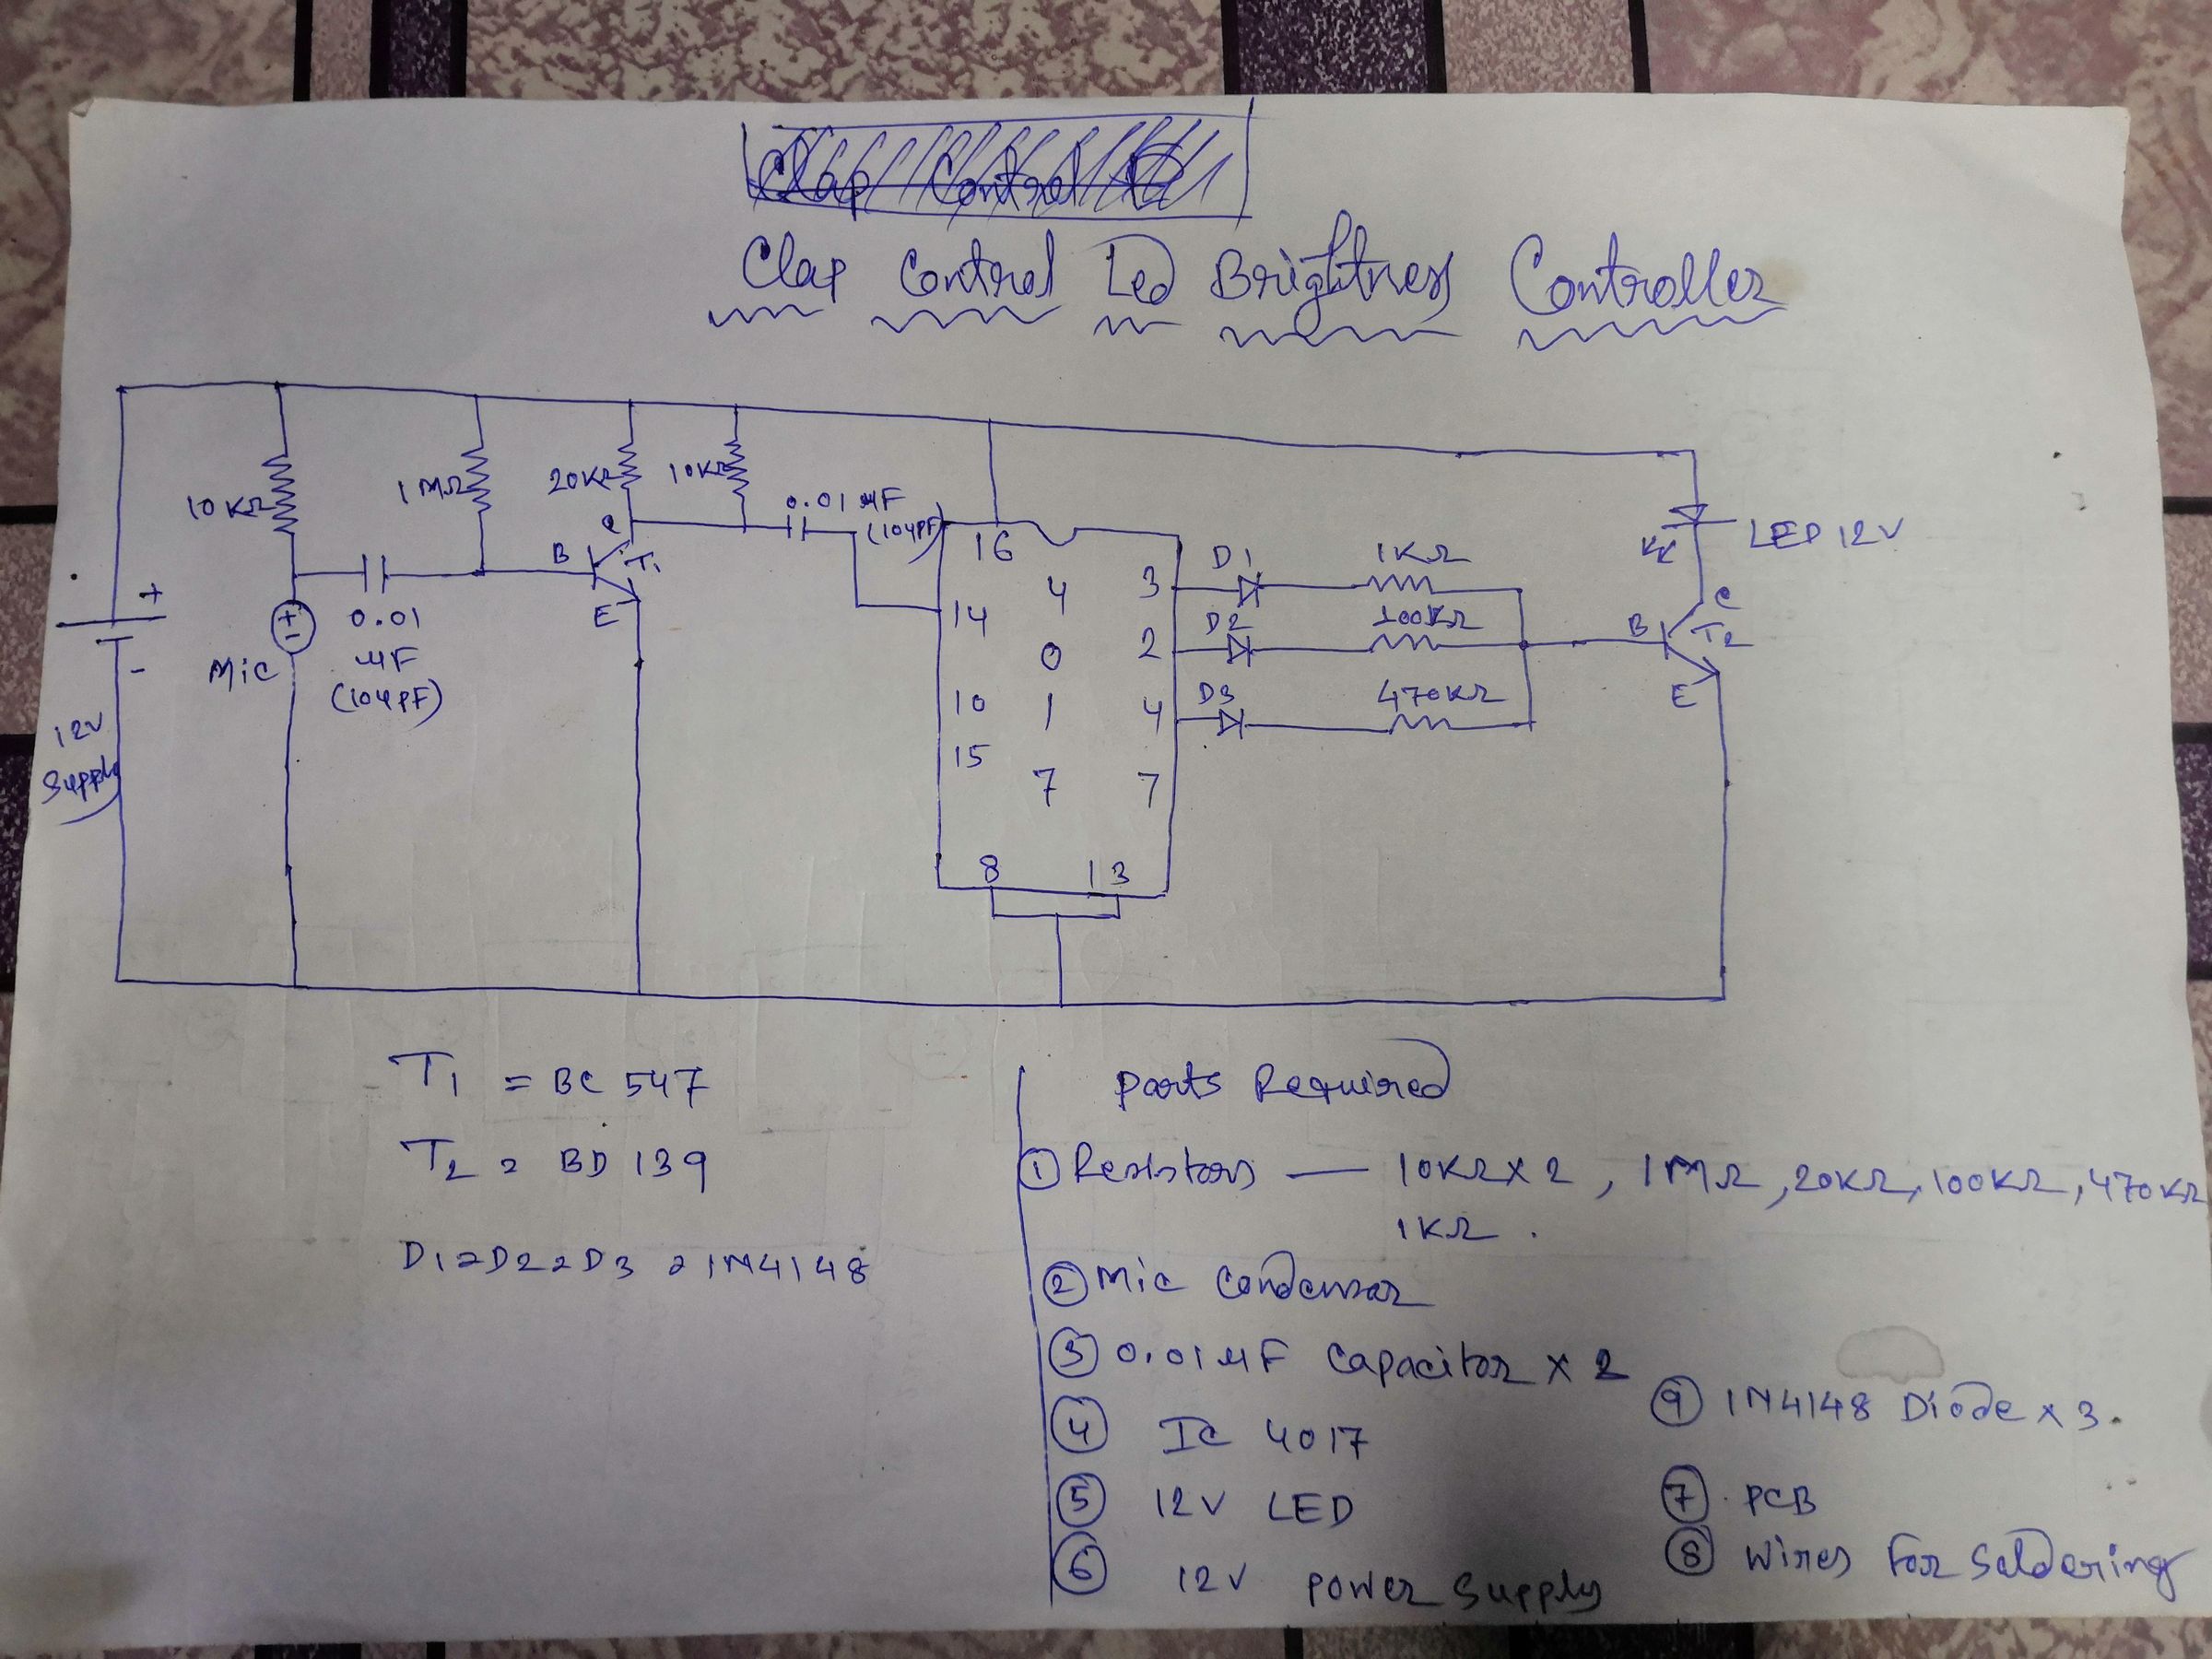 Clap Control
Clap Control Led Brightness Controller
10KΩ
1MΩ
20KΩ
10KΩ
0.01 µF
(104PF)
C
B
T1
E
+
-
12V
Supply
+
-
Mic
0.01
µF
(104PF)
16
14
10
15
4
0
1
7
3
2
4
7
8
13
D1
1KΩ
D2
100KΩ
D3
470KΩ
LED 12V
C
B
T2
E
T1 = BC 547
T2 = BD 139
D1=D2=D3 = 1N4148
Parts Required
① Resistors — 10KΩ×2, 1MΩ, 20KΩ, 100KΩ, 470KΩ
1KΩ.
② Mic Condensor
③ 0.01µF Capacitor × 2
④ IC 4017
⑤ 12V LED
⑥ 12V Power Supply
⑨ 1N4148 Diode × 3.
⑦ PCB
⑧ Wires For Soldering